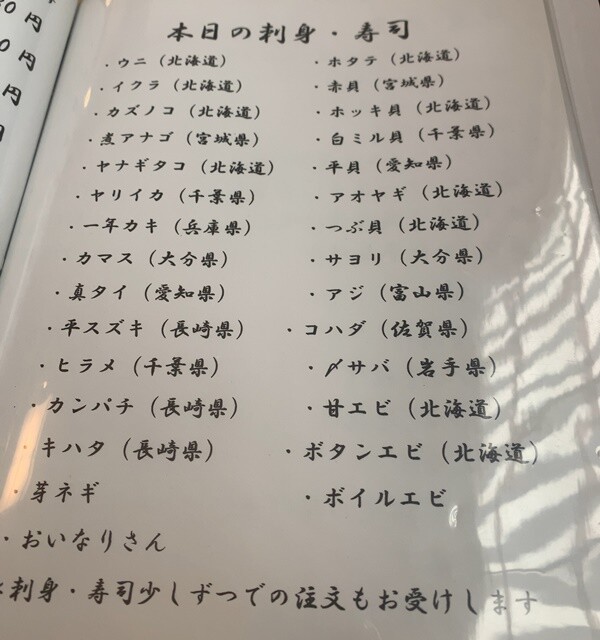 本日の刺身・寿司
・ウニ（北海道）
・イクラ（北海道）
・カズノコ（北海道）
・煮アナゴ（宮城県）
・ヤナギタコ（北海道）
・ヤリイカ（千葉県）
・一年カキ（兵庫県）
・カマス（大分県）
・真タイ（愛知県）
・平スズキ（長崎県）
・ヒラメ（千葉県）
・カンパチ（長崎県）
・キハタ（長崎県）
・芽ネギ
・おいなりさん
・ホタテ（北海道）
・赤貝（宮城県）
・ホッキ貝（北海道）
・白ミル貝（千葉県）
・平貝（愛知県）
・アオヤギ（北海道）
・つぶ貝（北海道）
・サヨリ（大分県）
・アジ（富山県）
・コハダ（佐賀県）
・〆サバ（岩手県）
・甘エビ（北海道）
・ボタンエビ（北海道）
・ボイルエビ
刺身・寿司少しずつでの注文もお受けします
円
0円
円
円